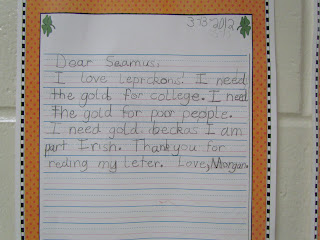 3-13-2012
Dear Seamus,
I love leprckons! I need
the gold for college. I need
the gold for poor people.
I need gold beckas I am
part Irish. Thank you for
reding my leter. Love, Morgan.